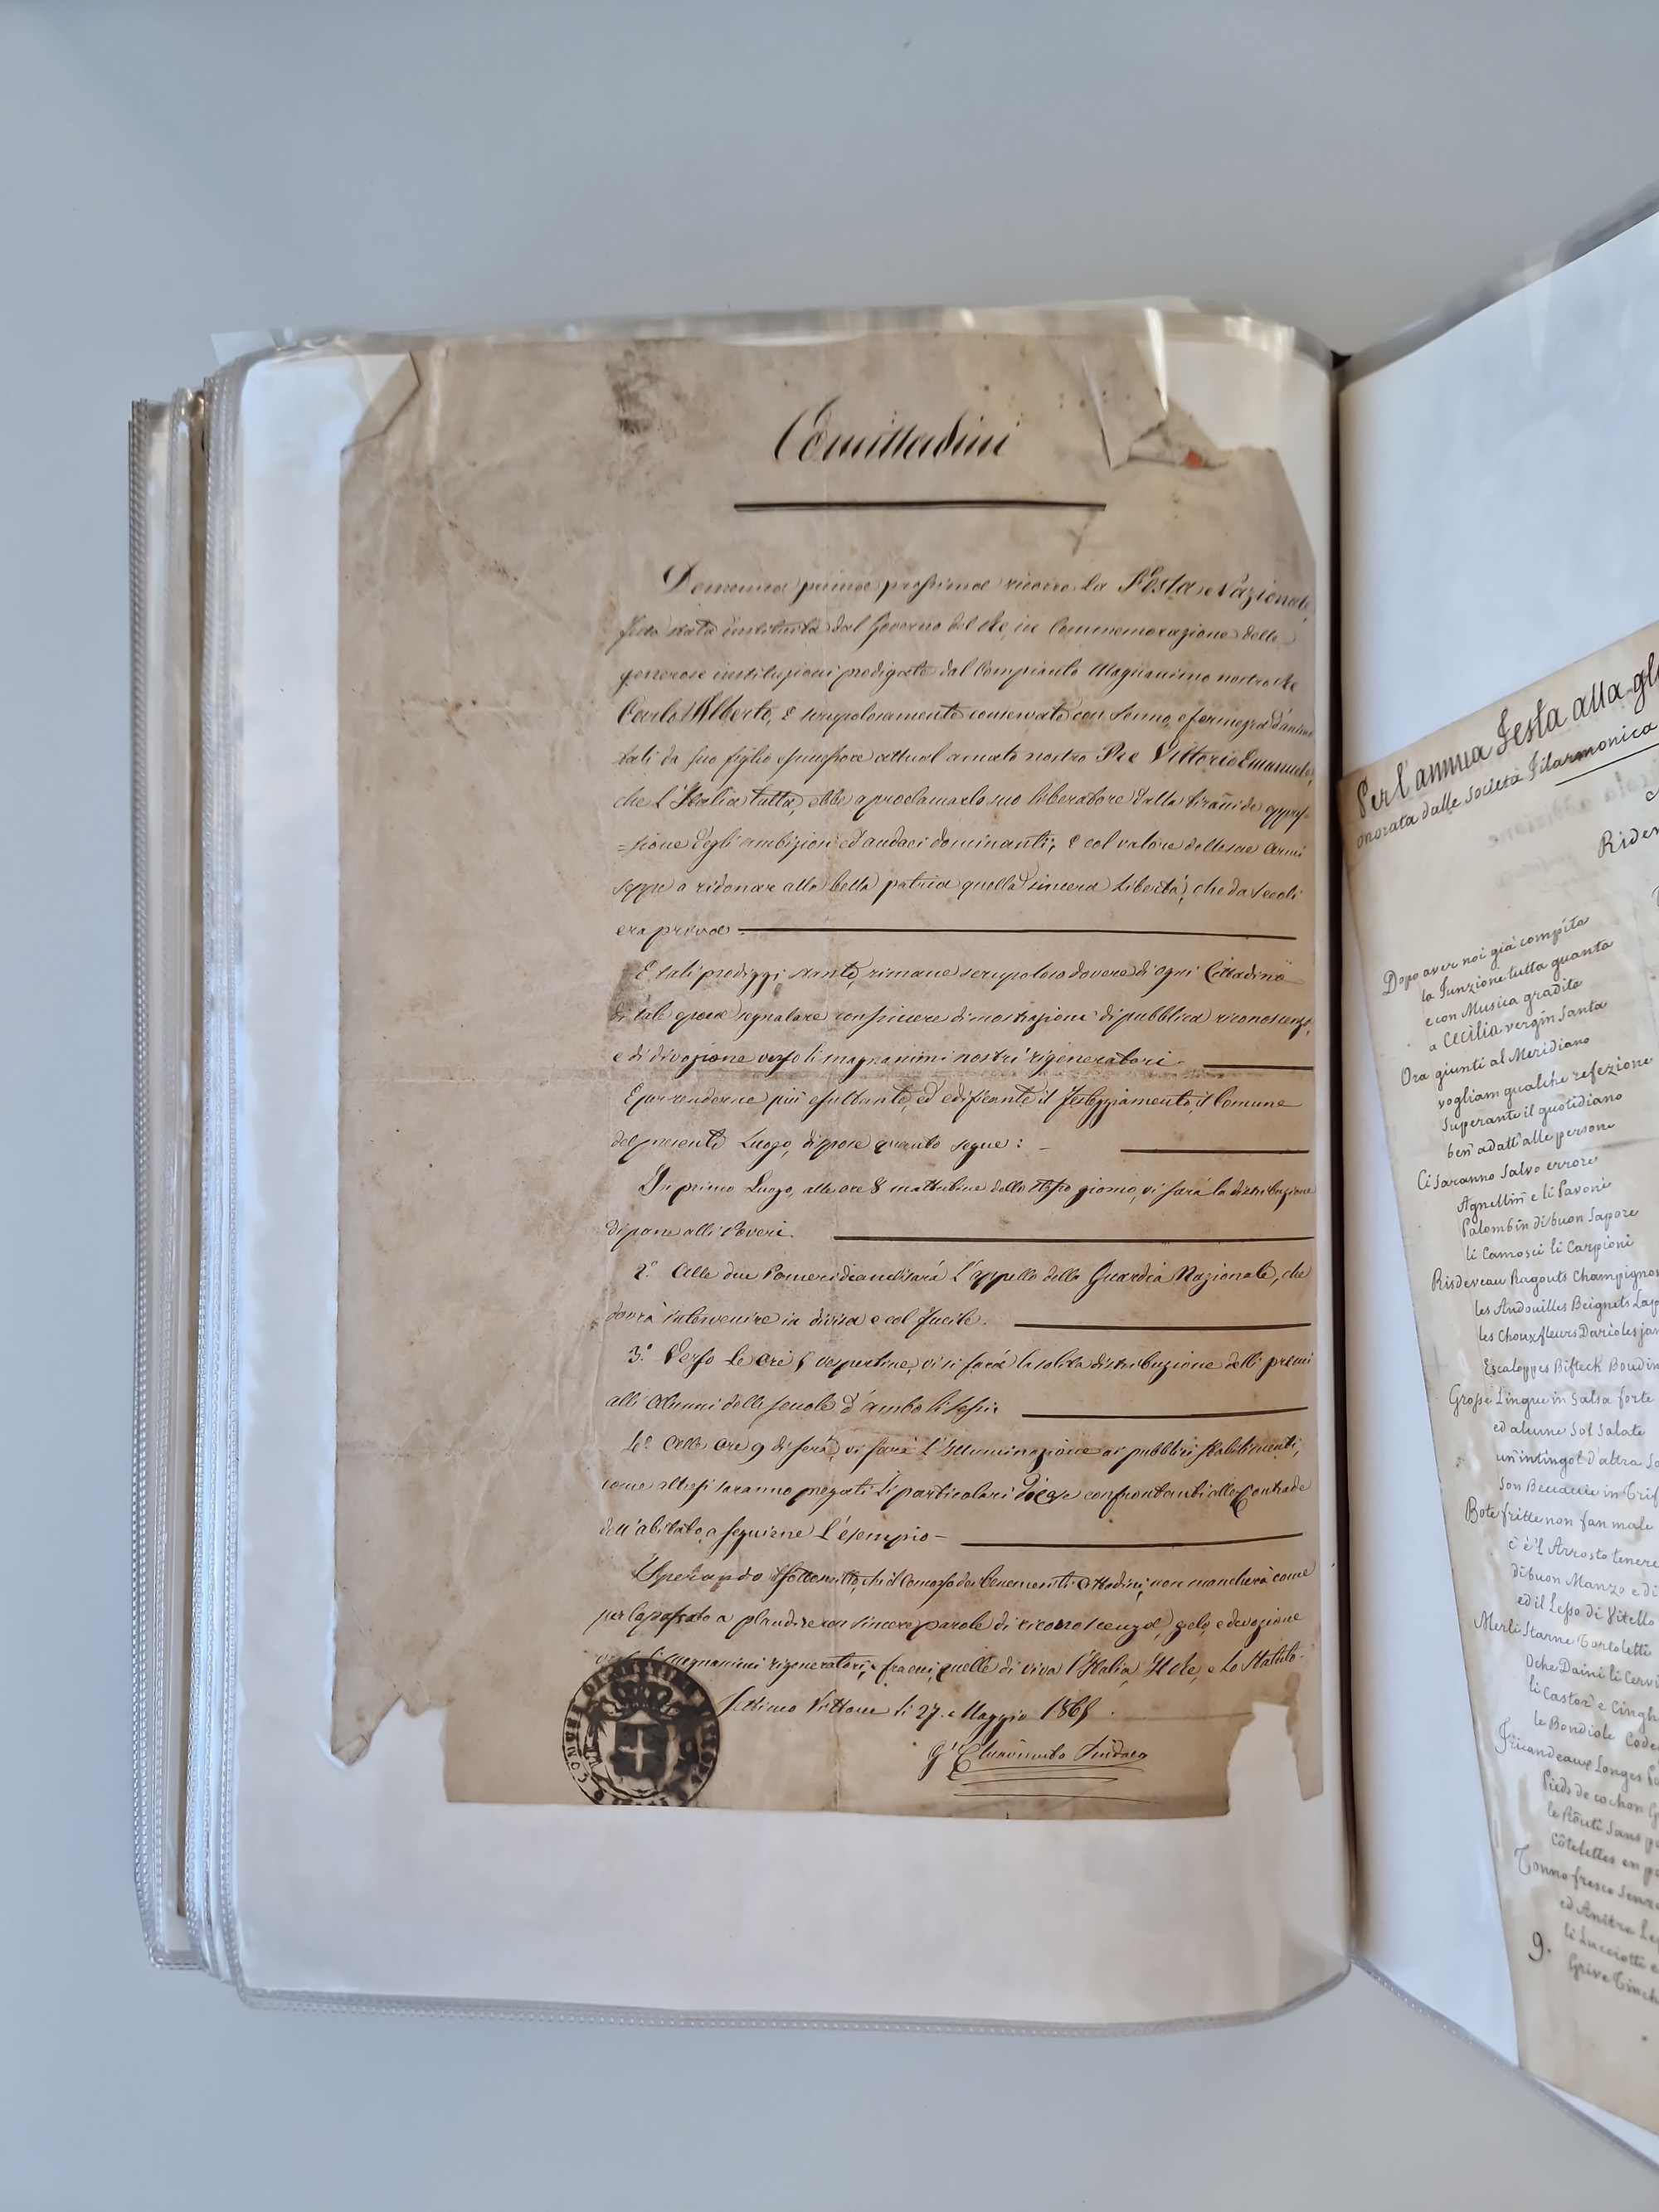 Concittadini
Domenica prima prossima ricorre la Festa Nazionale
stata instituita dal Governo del Re, in Commemorazione delle
generose instituzioni prodigate dal Compianto Magnanimo nostro Re
Carlo Alberto, e scrupolosamente conservate con senno, e fermezza d'animo
tali da suo figlio successore attual amato nostro Re Vittorio Emanuele,
che l'Italia tutta, ebbe a proclamarlo suo liberatore dalla tirannide oppres-
=sione degli ambiziosi ed audaci dominanti; e col valore delle sue armi
seppe a ridonare alla bella patria quella sincera libertà, che da secoli
era priva.
E tali prodiggi, rimane scrupoloso dovere di ogni Cittadino
di tale epoca segnalare con sincere dimostrazione di pubblica riconoscenza,
e di divozione verso li magnanimi nostri rigeneratori.
E per renderne più esultante, ed edificante il festeggiamento, il Comune
del presente Luogo, dispone quanto segue: -
In primo Luogo, alle ore 8 mattutine dello stesso giorno, vi sarà la distribuzione
di pane alli Poveri.
2.° Alle due Pomeridiane sarà l'appello della Guardia Nazionale, che
dovrà intervenire in divisa e col fucile.
3.° Verso le ore 5 vespertine, vi si farà la solita distribuzione delli premi
alli Alunni delle scuole d'ambo li sessi.
4.° Alle ore 9 di sera, vi sarà l'Illuminazione ai pubblici stabilimenti,
come altresì saranno pregati li particolari confrontanti alle Contrade
dell'abitato, a seguirne l'esempio -
Sperando il sottoscritto, che il Concorso dei benemeriti Cittadini, non mancherà come
per lo passato a plaudire con sincere parole di riconoscenza, zelo, e devozione
li magnanimi rigeneratori, quelle di viva l'Italia, Il Re, e Lo Statuto.
Settimo Vittone li 27. Maggio 1865.
Sindaco
Per l'annua Festa alla gl
onorata dalle Società Filarmonica
Rider
Dopo aver noi già compita
la funzione tutta quanta
e con Musica gradita
a Cecilia vergin Santa
Ora giunti al Meridiano
vogliam qualche refezione
Superante il quotidiano
ben adatt'alle persone
Ci saranno Salvo errore
Agnellin e li Pavoni
Palombin di buon Sapore
li Camosci li Carpioni
Risdeveau Ragouts Champignos
les Andouilles Beignets Lap
les Chouxfleurs Darioles jan
Escaloppes Bifteck Boudin
Grosse Lingue in Salsa forte
ed alune Sol Salate
un'intingol d'altra So
son Beccacie in Trif
Bote fritte non fan male
c'è 'l Arrosto tenere
di buon Manzo e di
ed il Lesso di Vitello
Merli Starne Tortolette
Oche Daini li Cervi
li Castor e Cingh
le Bondiole Code
Fricandeaux Longes
Pieds de cochon
le Rôuti Sans
Côtelettes en
Tonno fresco Senza
ed Anitre Le
li Lucciotti e
Grive Tinch
9.